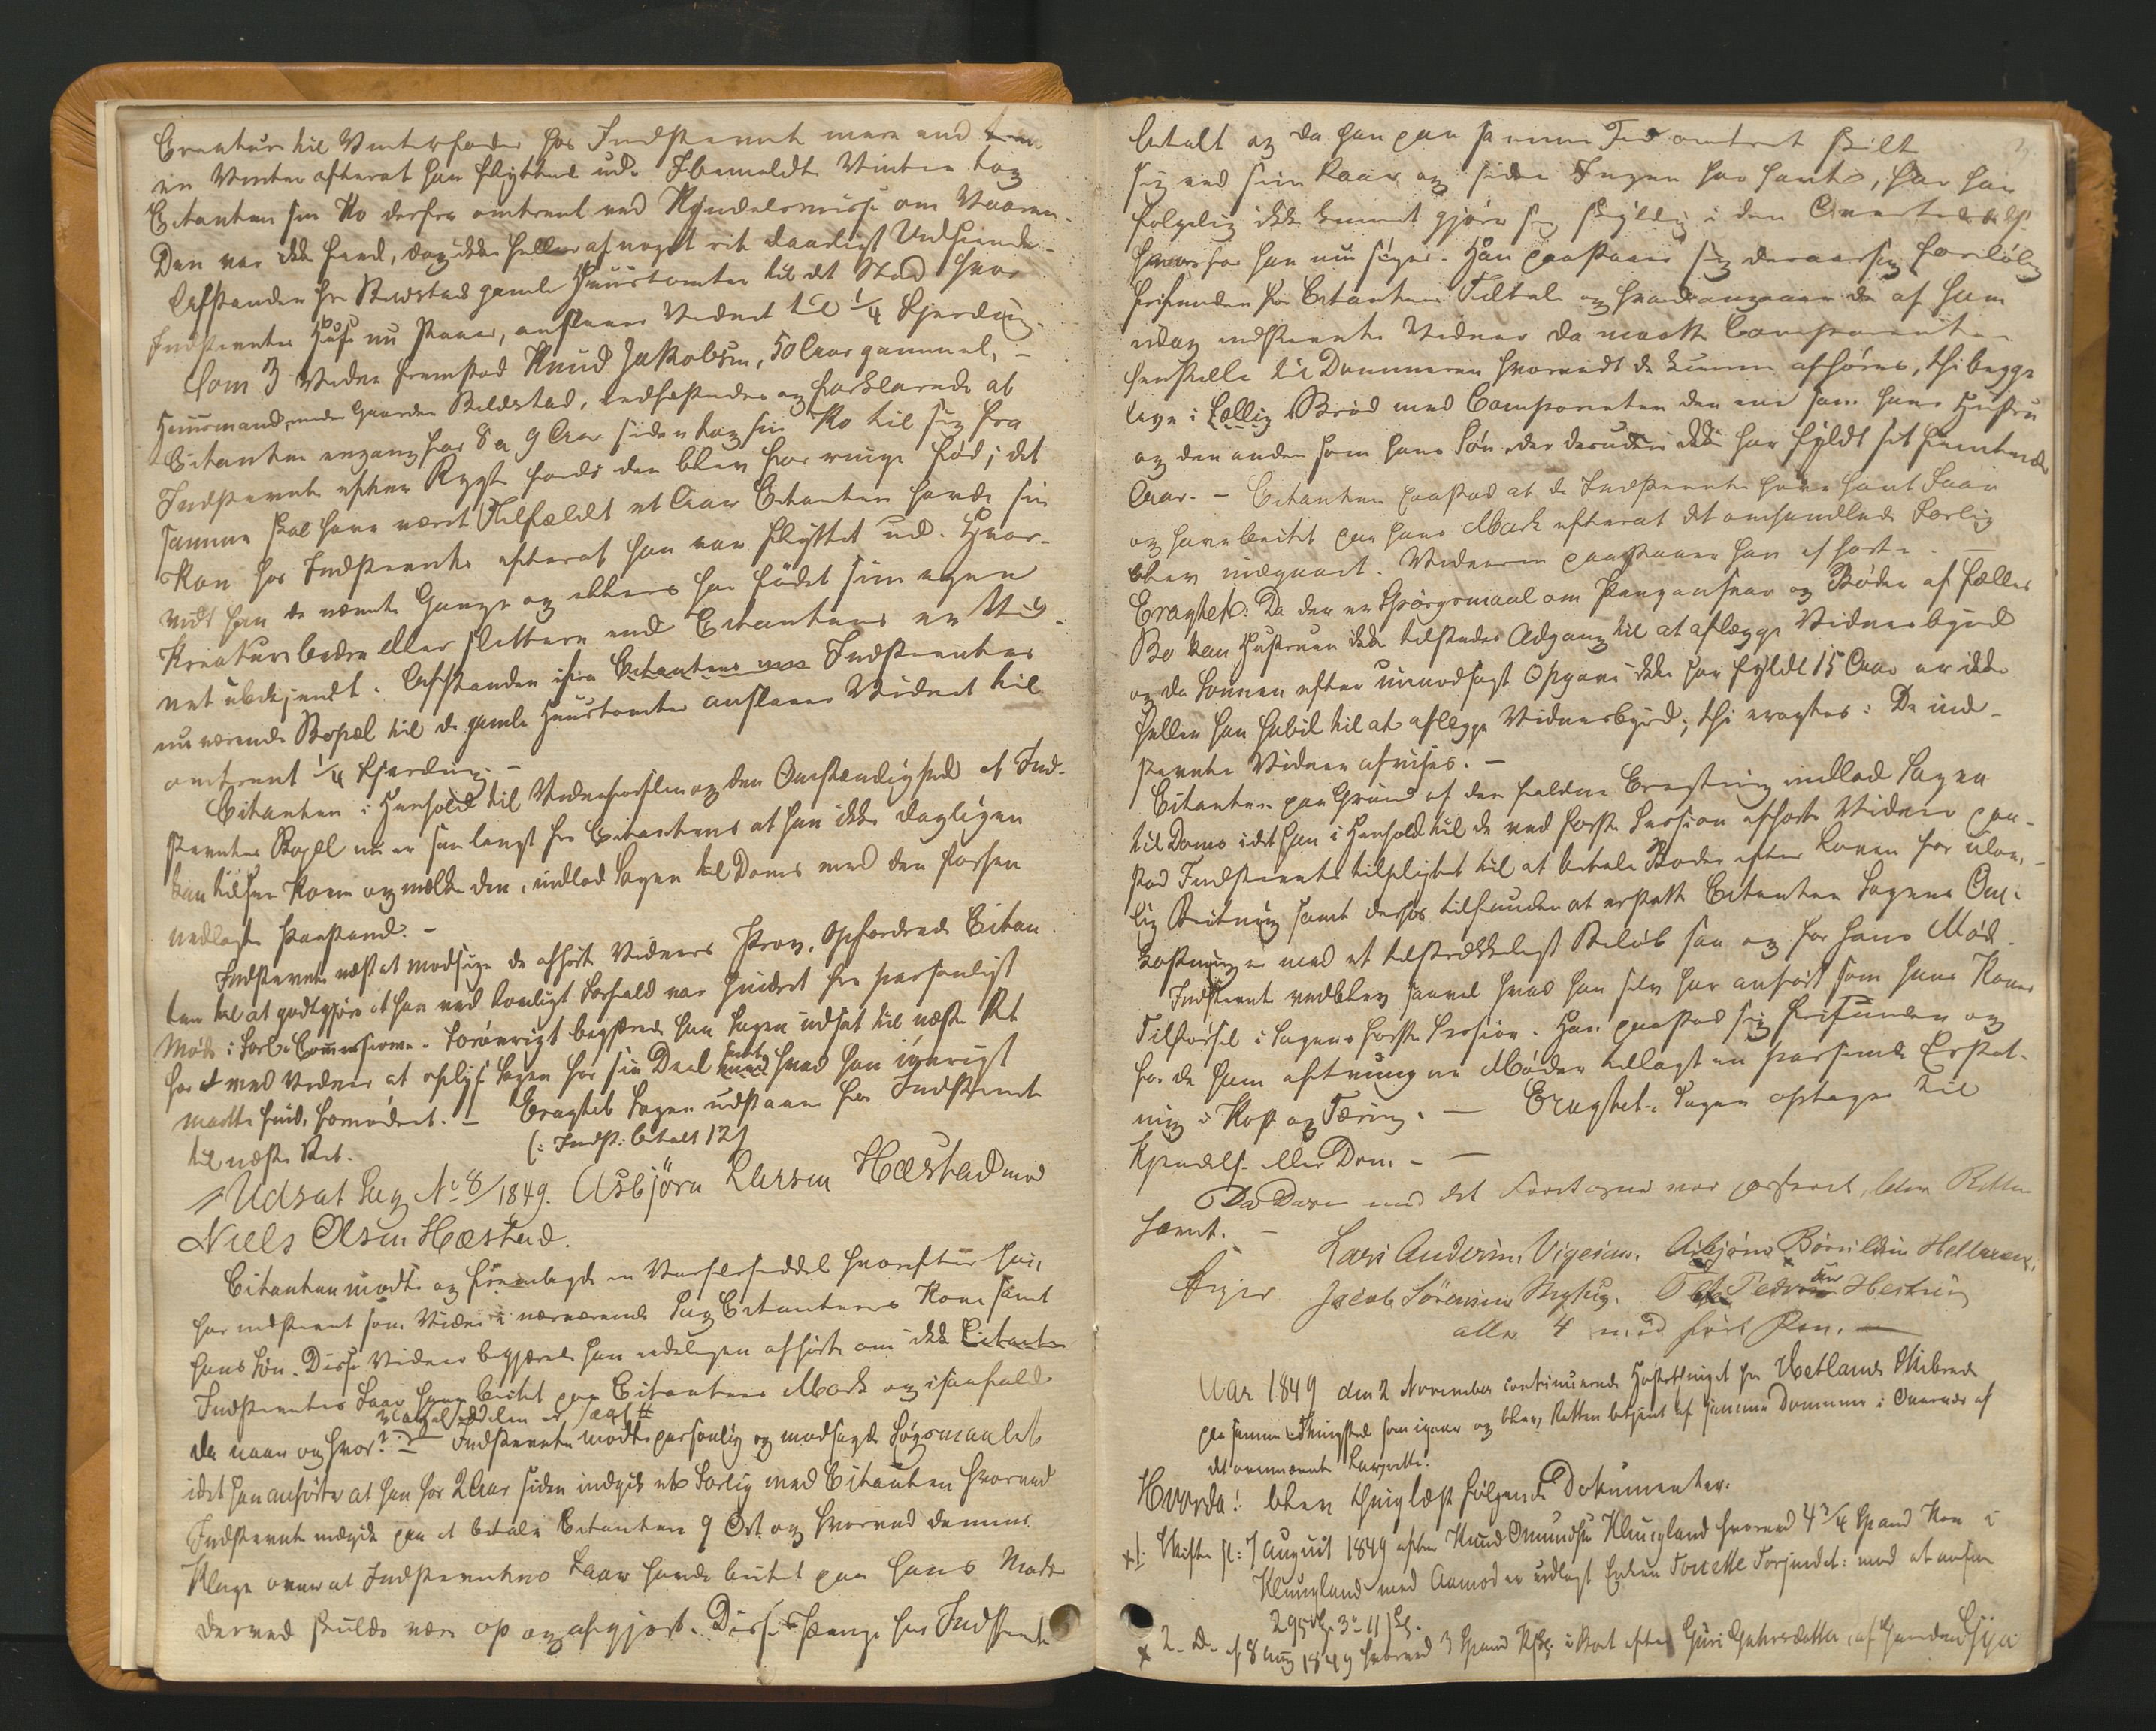 Creatur til Vinterfoder hos Indstevnte mere end
en Vinter efterat han flyttede ud. Ibemeldte Vinter tog
Citanten sin Ko derfra omtrent ved Kyndelsmisse om Vaaren.
Den var ikke feed, dog ikke heller af noget vit daarligt Udseende.
Afstanden fra Bedstad gamle Huustomter til det Sted hvor
Indstevntes Huse nu staar, anslaaer Vidnet til 1/4 Fjerding.
Som 3 Vidne fremstod Knud Jakobsen, 50 Aar gammel, –
Huusmand under Gaarden Bedstad, edfæstedes og forklarede at
Citanten engang for 8 a 9 Aar siden tog sin Ko til sig fra
Indstevnte efter Rygte fordi den blev for ringe fød; det
samme skal have været Tilfældet et Aar Citanten havde sin
Koen hos Indstevnte efterat han var flyttet ud. Hvor-
vidt han de nævnte Gange og ellers har fødet sine egne
Kreature bedre eller slettere end Citantens er Vid-
net ubekjendt. Afstanden ifra Citantens Indstevntes
nuværende Bopæl til de gamle Huustomter anslaaer Vidnet til
omtrent 1/4 Fjerding. –
Citanten i Henhold til Vidneførslen og den Omstændighed at Ind-
stevntes Bopæl nu er saa langt fra Citantens at han ikke dagligen
kan tilsee Koen og melke den, indlod Sagen til Doms med den forhen
nedlagte Paastand. –
Indstevnte næst at modsige de afhørte Vidners Prov, opfordrede Citan-
ten til at godtgjøre at han ved lovligt Forfald var hindret fra personligt
Møde i Forl. Commissionen. Forøvrigt begjærede han Sagen udsat til næste Ret
for at med Vidner at oplyse Sagen for sin Deel samt hvad han iøvrigt
maatte finde fornødent. – Eragtet Sagen udstaar for Indstevnte
til næste Ret. (: Indst: betalt 12 ß
Udsat Sag No 8/1849. Asbjörn Larsen Hæstad mod
Niels Olsen Hæstad.
Citanten mødte og fremlagde en Varselseddel hvorefter han
har indstevnt som Vidner i nærværende Sag Citantens Kone samt
hans Søn. Disse Vidner begjærede han edeligen afhørte om ikke Citanten
Indstevntes Faar have beitet paa Citantens Mark og isaafald
da naar og hvor? – Indstevnte mødte personlig og modsagde Søgsmaalet
idet han anførte at han for 2 Aar siden indgik et Forlig med Citanten hvorved
Indstevnte indgik paa at betale Citanten 9 Ort og hvorved dennes
Klage over at Indstevntes Faar havde beitet paa hans Mark
derved skulde være op og afgjort. Disse Penge har Indstevnte
betalt og da han paa samme Tid omtrent skilte
sig ved sine Faar og siden Ingen har havt, har han
følgelig ikke kunnet gjøre sig skyldig i den Overtrædelse
hvorfor han nu søges. Han paastaaer sig derfor foreløbig
frifunden for Citantens Tiltale og hvadangaaer de af ham
idag indstevnte Vidner da maatte Comparenten
henstille til Dommeren hvorvidt de kunne afhøres, thi begge
leve i fællig Brød med Comparenten den ene som hans Hustru
og den anden som hans Søn der desuden ikke har fyldt sit femtende
Aar. – Citanten paastod at de Indstevnte have havt Faar
og have beitet paa hans Mark efterat det omhandlede Forlig
blev indgaaet. Vidnerne paastaaer han afhørte. –
Eragtet: Da der er Spørgsmaal om Pengeansvar og Bøder af fælles
Bo kan Hustruen ikke tilstedes Adgang til at aflægge Vidnesbyrd
og da Sønnen efter uimodsagt Opgave ikke har fyldt 15 Aar er ikke
heller han habil til at aflægge Vidnesbyrd, thi eragtes: De ind-
stevnte Vidner afvises. –
Citanten paa Grund af den faldne Eragtning indlod Sagen
til Doms idet han i Henhold til de ved første Session afhørte Vidner paa-
stod Indstevnte tilpligtet til at betale Bøder efter Loven for ulov-
lig Beitning samt derhos tilfunden at erstatte Citanten Sagens Om-
kostninger med et tilstrækkeligt Beløb saa og for hans Møde.
Indstevnte vedblev saavel hvad han selv har anført som hans Kones
Tilførsel i Sagens første Session. Han paastod sig frifunden og
for de ham aftvungne Møder tillagt en passende Erstat-
ning i Kost og Tæring. – Eragtet: Sagen optages til
Kjendelse eller Dom. –
Da Dagen med det Foretagne var passeret, blev Retten
hævet. –
Lars Andersen Vigesaa. Asbjørn Börildsen Helleren.
Jacob Sörensen Ole Pedersen Hestnes
alle 4 med ført Pen. –
Aar 1849 den 2 November continuerede Høsttthinget for Hetlands Skibrede
paa samme Thingsted som igaar og blev Retten betjent af samme Dommer i Overvær af
det ovennævnte Laugrette.
Hvorda! blev thinglæst følgende Dokumenter.
× 1: Skifte sl: 7 August 1849 efter Knud Omundsen Klungland hvorved 4 3/4 Spand Korn i
Klungland med Aamodt er udlagt Enken Torette Torjusdt: mod at
295 Sp. 3 – 11 ß.
× 2 – Do – af 8 Aug 1849 hvorved 3 Spand i Boet efter Guri Gabrielsdatter, af Gaarden